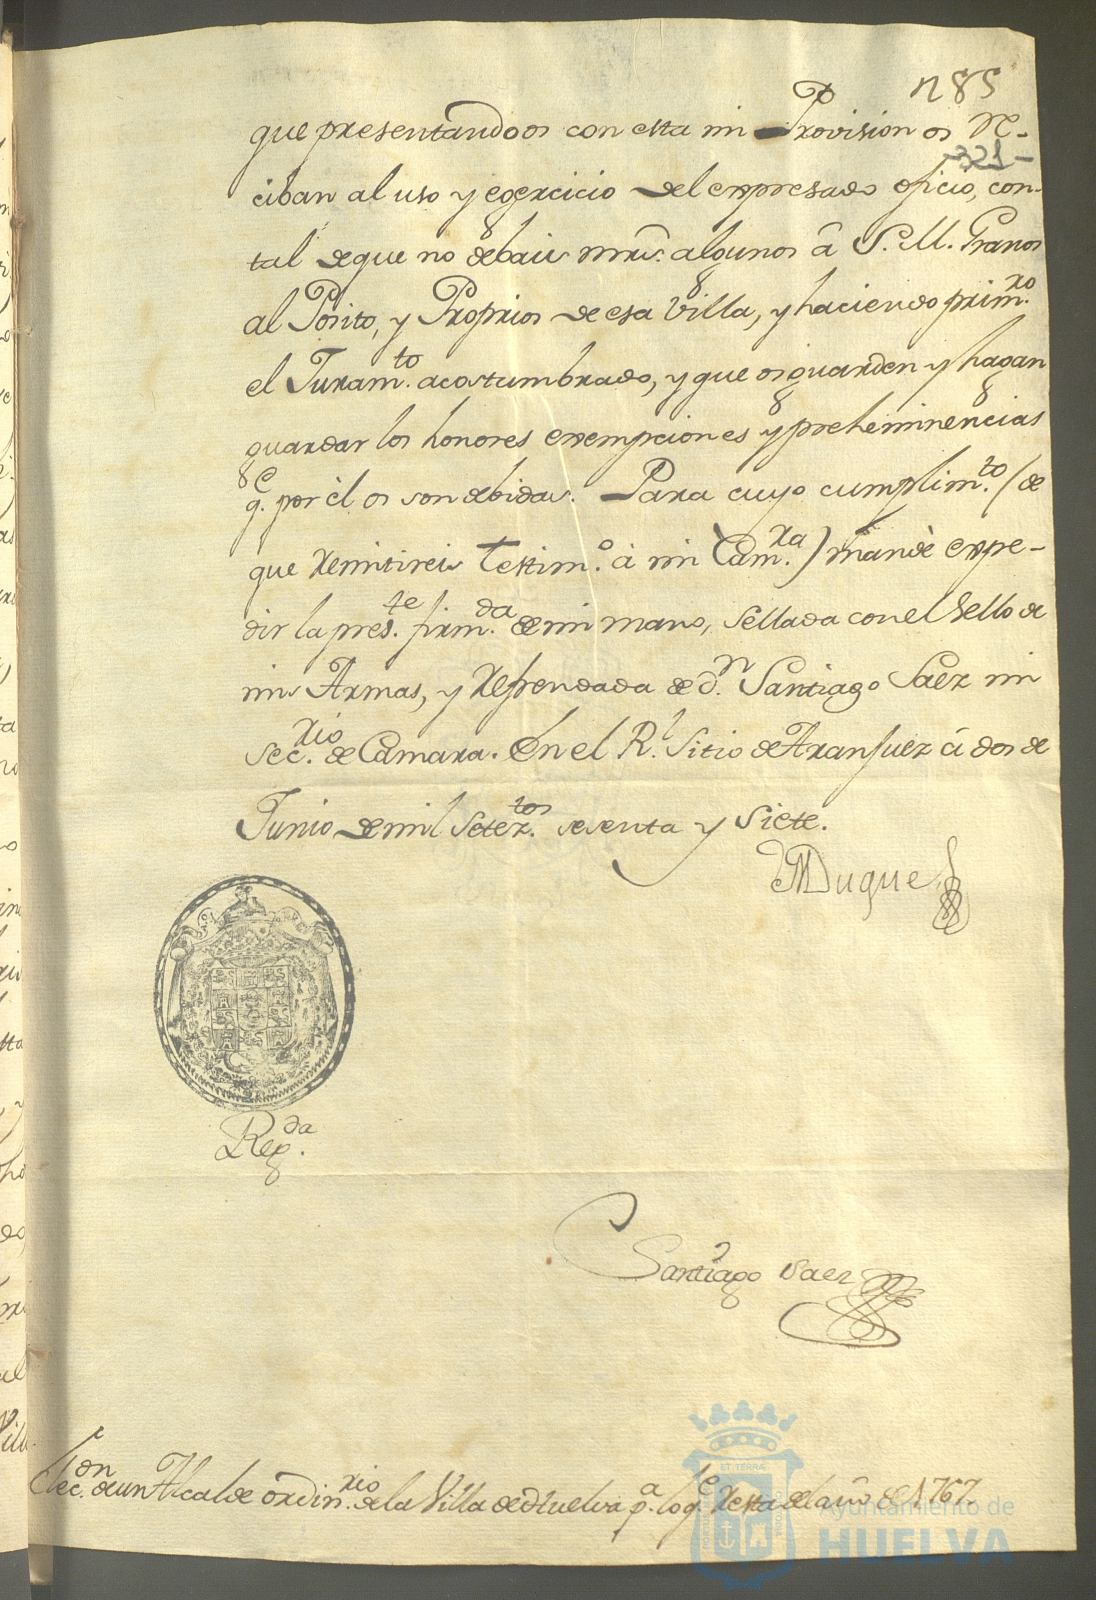 n 85
que presentandoos con esta mi Provision os Re-
-321-
ciban al uso y egercicio del expresado oficio, con-
tal deque no debais mrs. algunos â S. M. Granos
al Pósito, y Proprios de esa Villa, y haciendo prim.ro
el Juram.to acostumbrado, y que os guarden y hagan
guardar los honores exempciones y preheminencias
q.e por èl os son debidas. Para cuyo cumplim.to (de
que remitireis Testim.o à mi Cam.ra) mandè expe-
dir la pres.te firm.da de mi mano, sellada con el Sello de
mis Armas, y Refrendada de d.n Santiago Saez mi
Sec.rio de Camara. En el R.l Sitio de Aranjuez á dos de
Junio de mil Setez.tos sesenta y Siete.
El Duque
Reg.da
Santiago Saez
Elec.on de un Alcalde ordin.rio de la Villa de Huelva p.a lo q.e Resta del año de 1767.
ET TERRÆ
Ayuntamiento de
HUELVA